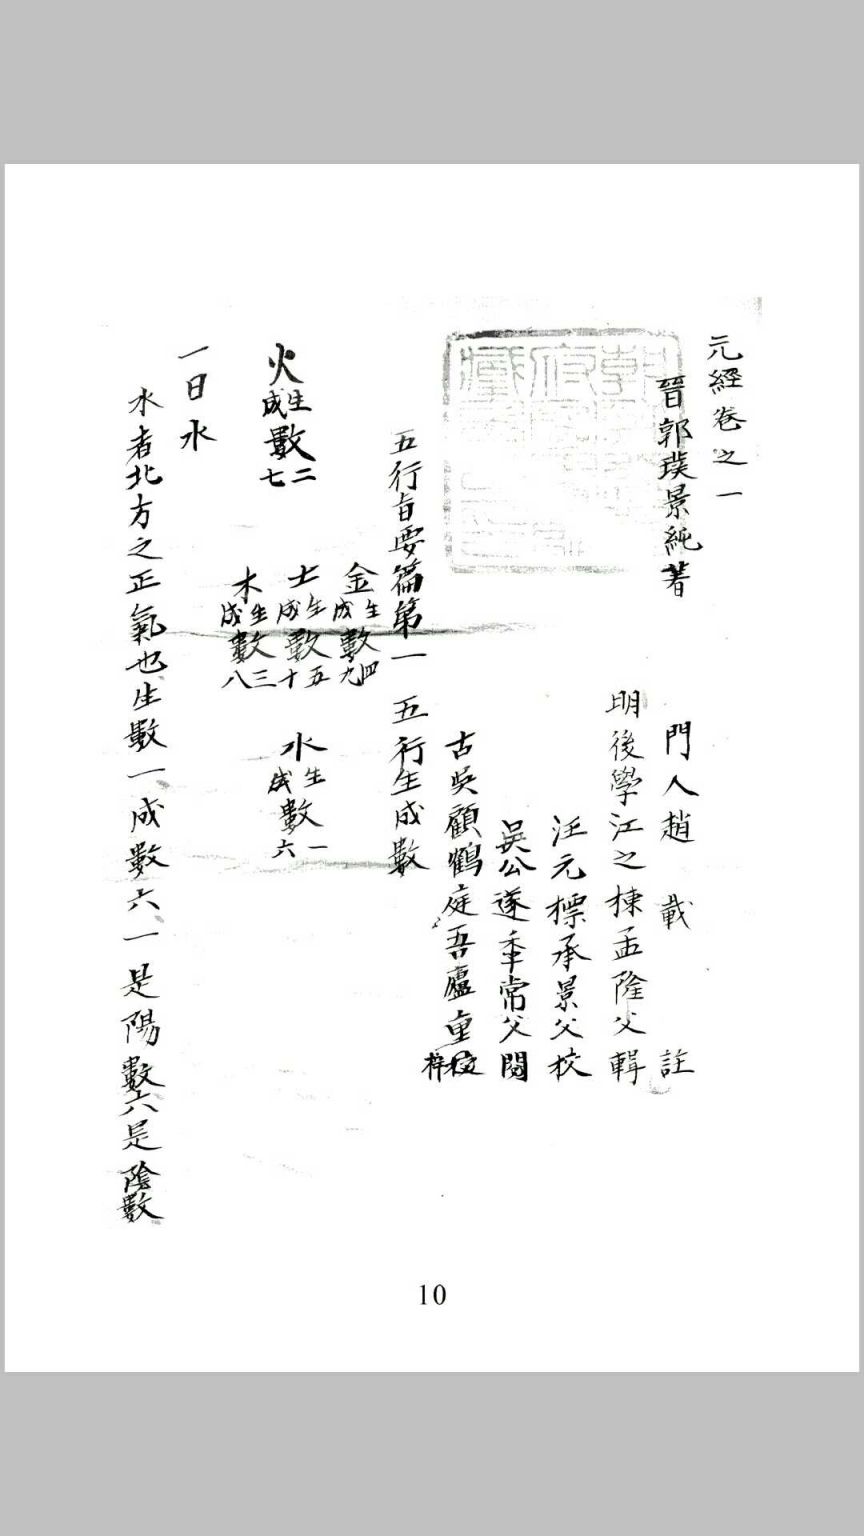 元經卷之一
晉郭璞景純著
門人趙載註
明後學江之棟孟隆父輯
汪元標承景父校
吳公遂季常父閱
古吳顧鶴庭吾廬重校梓
五行旨要篇第一 五行生成數
金生成數四九
水生成數一六
土生成數五十
火生成數二七
木生成數三八
一曰水
水者北方之正氣也生數一成數六一是陽數六是陰數
10